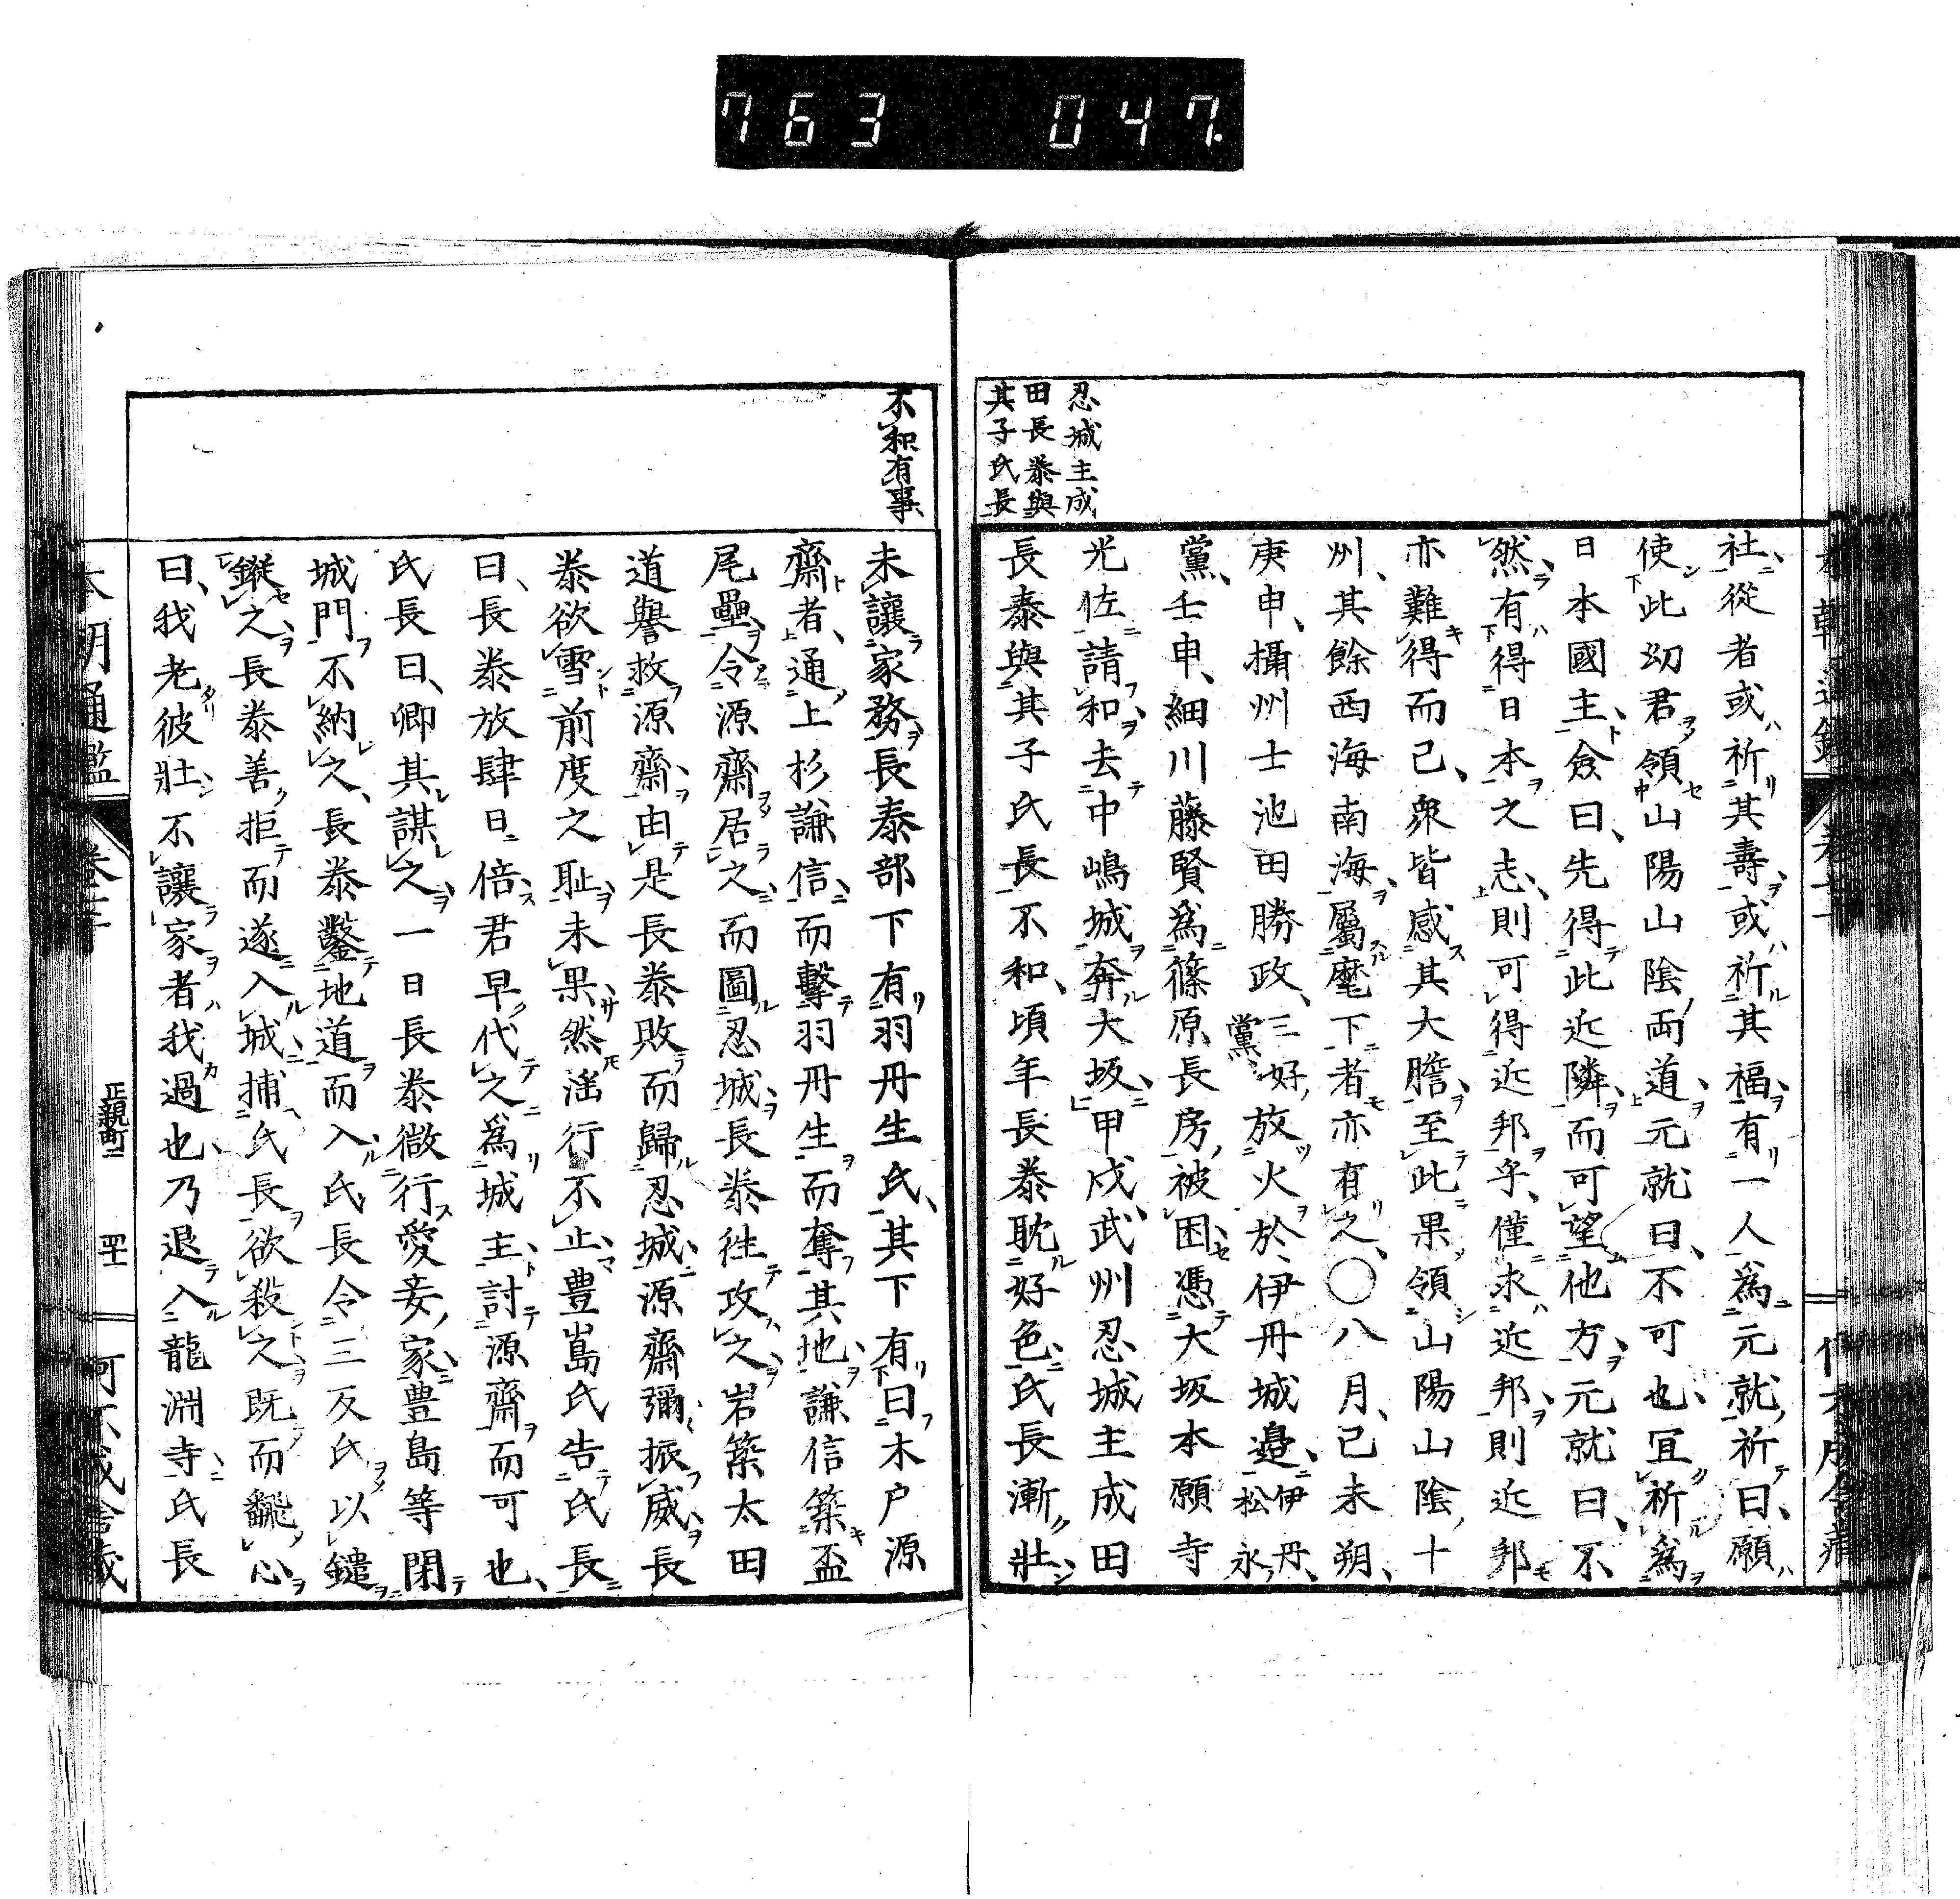 763 047.
忍城主成
田長泰與
其子氏長
社從者或祈其壽或祈其福有一人爲元就祈曰願
使此幼君領山陽山陰両道元就曰不可也宜祈爲
日本國主僉曰先得此近隣而可望他方元就曰不
然有得日本之志則可得近邦乎僅求近邦則近邦
亦難得而已衆皆感其大膽至此果領山陽山陰十
州其餘西海南海屬麾下者亦有之〇八月己未朔
庚申攝州士池田勝政三好黨放火於伊丹城邉伊丹松永
黨壬申細川藤賢爲篠原長房被困憑大坂本願寺
光佐請和去中嶋城奔大坂甲戌武州忍城主成田
長泰與其子氏長不和頃年長泰耽好色氏長漸壯
不和有事
未讓家務長泰部下有羽丹生氏其下有曰木戸源
齋者通上杉謙信而擊羽丹生而奪其地謙信築盃
尾壘令源齋居之而圖忍城長泰徃攻之岩築太田
道譽救源齋由是長泰敗而歸忍城源齋彌振威長
泰欲雪前度之耻未果然滛行不止豊島氏告氏長
曰長泰放肆日倍君早代之爲城主討源齋而可也
氏長曰卿其謀之一日長泰微行愛妾家豊島等閉
城門不納之長泰鑿地道而入氏長令三反氏以鑓
鏦之長泰善拒而遂入城捕氏長欲殺之既而飜心
曰我老彼壯不讓家者我過也乃退入龍淵寺氏長
本朝通鑑
正親町二